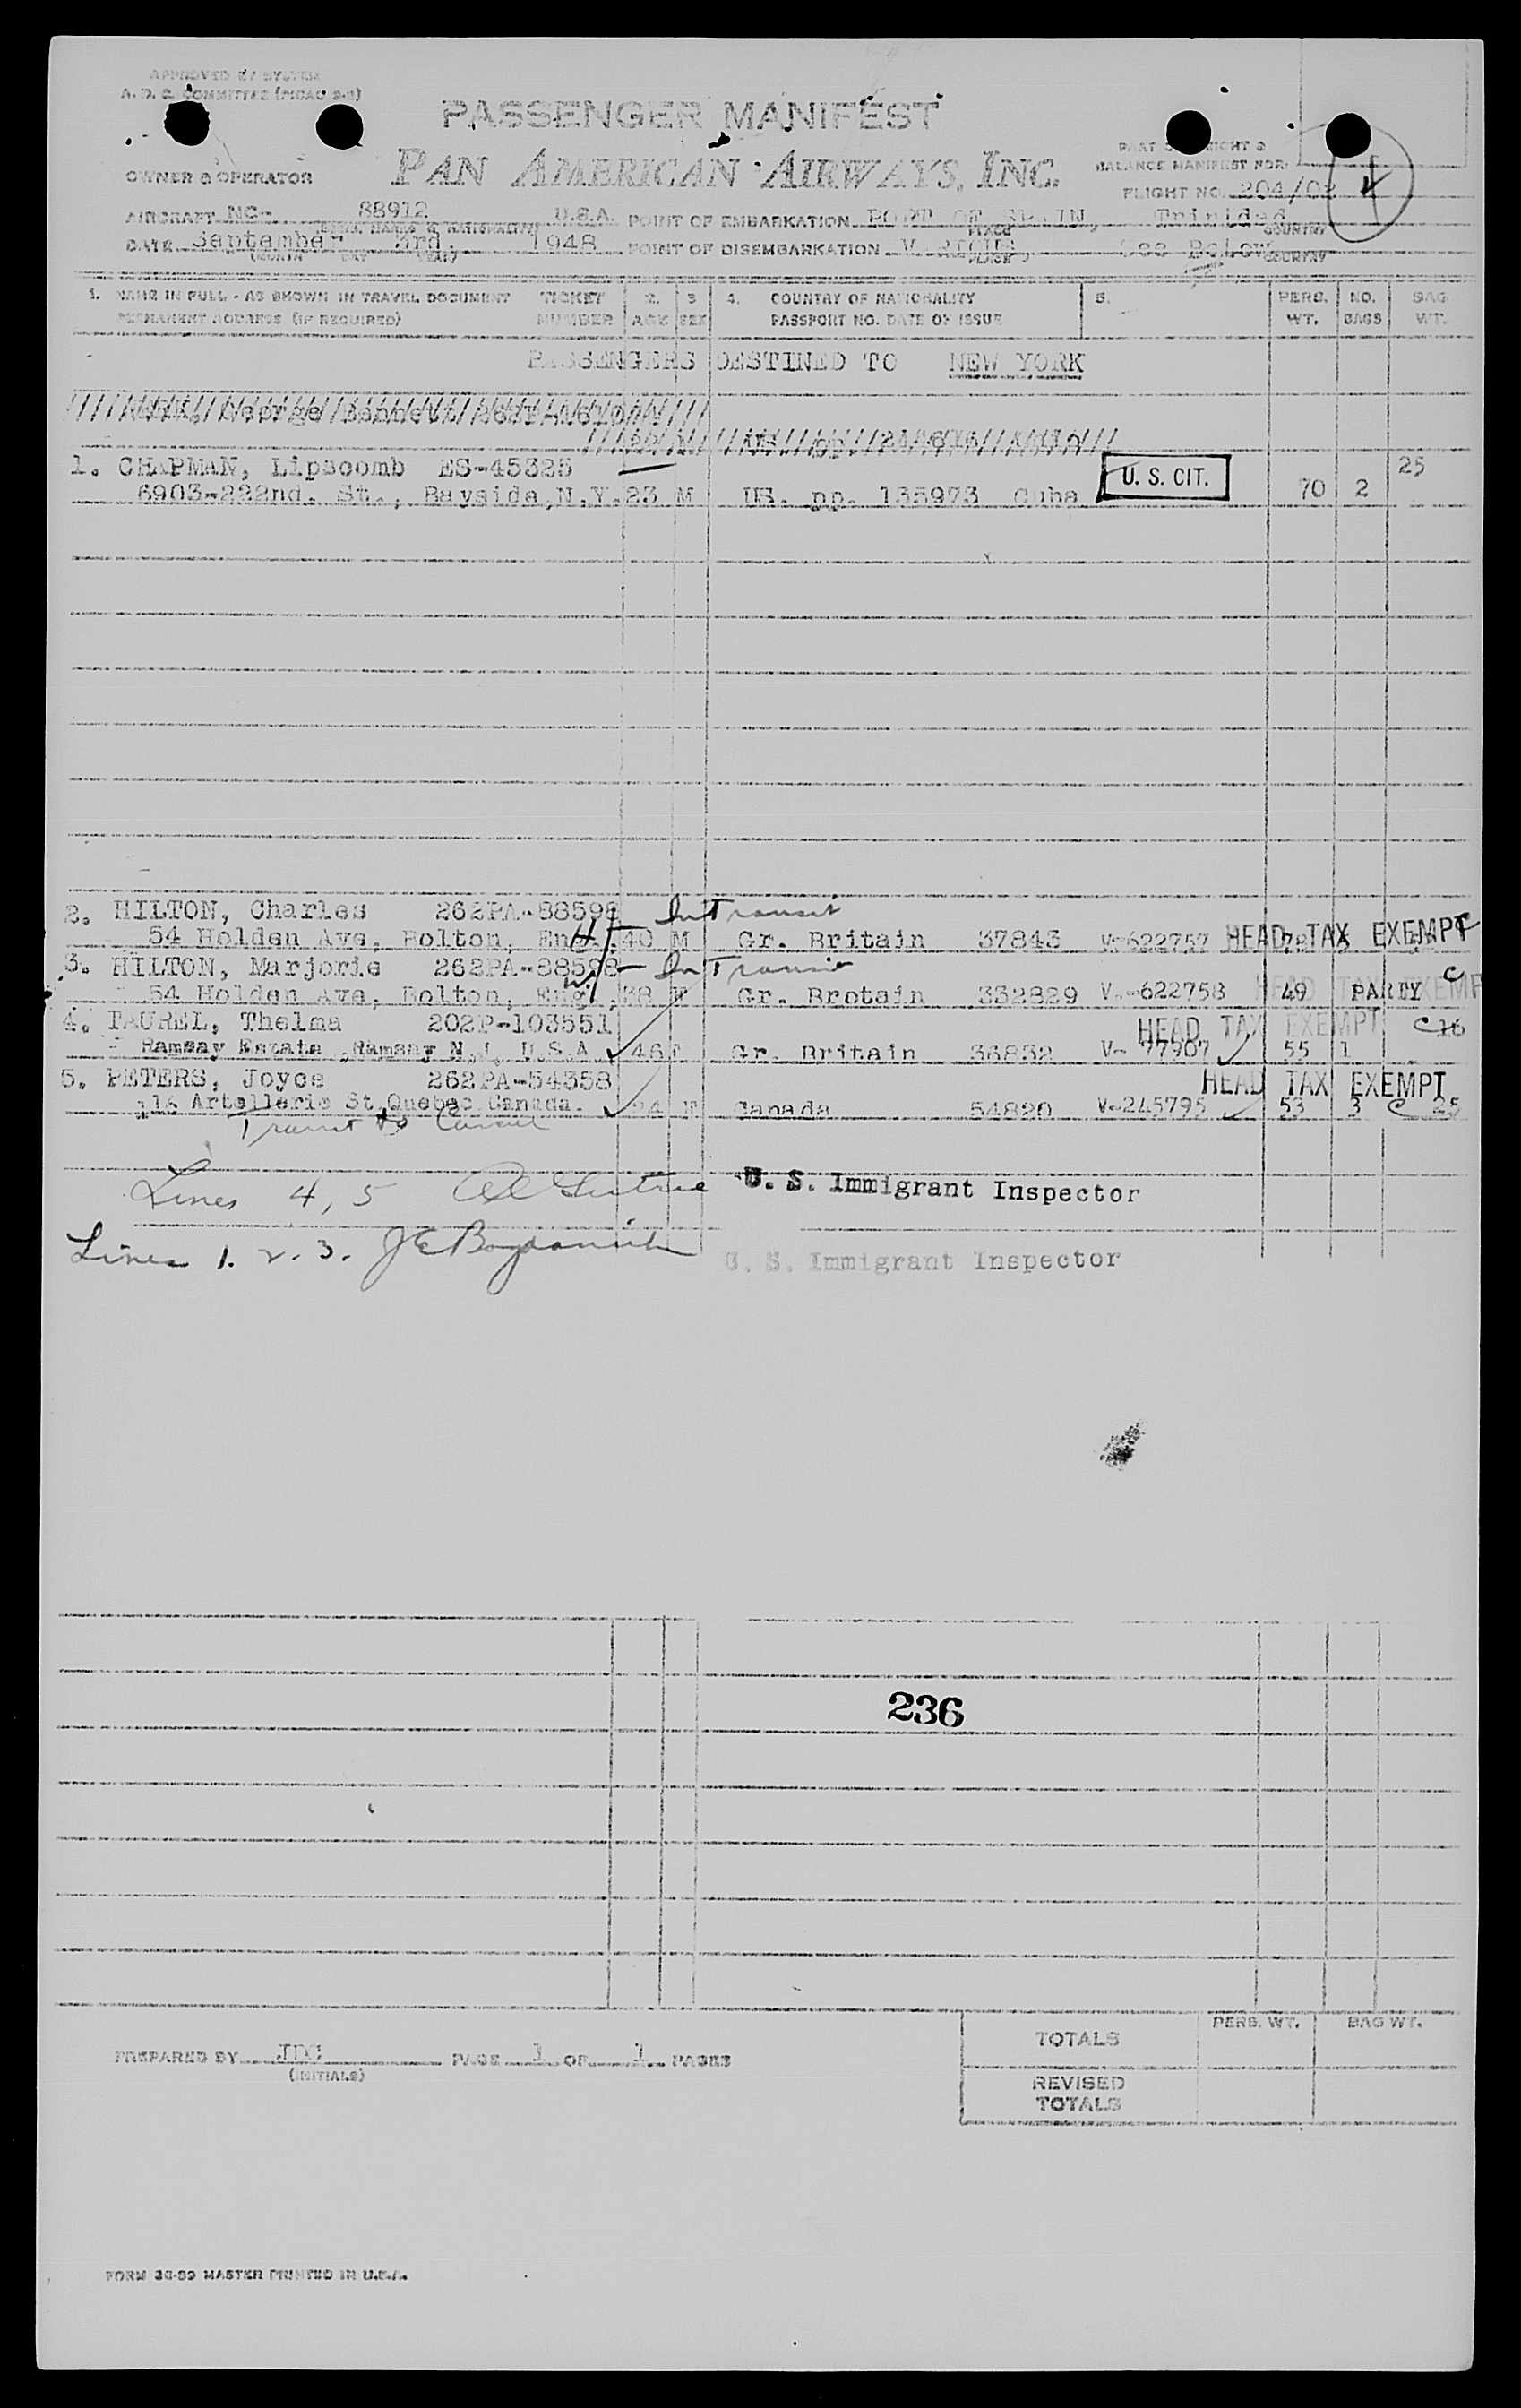 APPROVED BY SYSTEM
A. D. C. COMMITTEE (PICAO 2-3)
PASSENGER MANIFEST
PAN AMERICAN AIRWAYS, INC.
OWNER & OPERATOR
BALANCE MANIFEST FOR:
FLIGHT NO. 204/02
4
AIRCRAFT NC- 88912 U.S.A. POINT OF EMBARKATION PORT OF SPAIN, Trinidad
PLACE COUNTRY
DATE September 3rd. 1948 POINT OF DISEMBARKATION VARIOUS, See Below
(MONTH DAY YEAR) PLACE COUNTRY
1. NAME IN FULL - AS SHOWN IN TRAVEL DOCUMENT TICKET 2. 3 4. COUNTRY OF NATIONALITY 5. PERS. NO. BAG
PERMANENT ADDRESS (IF REQUIRED) NUMBER AGE SEX PASSPORT NO. DATE OF ISSUE WT. BAGS WT.
PASSENGERS DESTINED TO NEW YORK
George
1. CHAPMAN, Lipscomb ES-45325 25
6903-222nd. St., Bayside, N.Y. 23 M US. pp. 135973 Cuba U. S. CIT. 70 2
2. HILTON, Charles 262PA-88598 In Transit
54 Holden Ave, Bolton, Eng. 40 M Gr. Britain 37843 V-622757 HEAD TAX EXEMPT
3. HILTON, Marjorie 262PA-88598 - In Transit C
54 Holden Ave, Bolton, Eng. 38 F Gr. Brotain 332829 V-622758 49 PARTY HEAD TAX EXEMP
4. TAUREL, Thelma 202P-103551 HEAD TAX EXEMPT
Ramsay Estate, Ramsay N.J. U.S.A. 46 F Gr. Britain 36832 V- 77907 55 1
5. PETERS, Joyce 262PA-54358 HEAD TAX EXEMPT
Artellerie St, Quebec Canada. 24 F Canada 54820 V-245795 53 3 C 25
Transit to Canada
Lines 4, 5 U. S. Immigrant Inspector
Lines 1. 2. 3. U. S. Immigrant Inspector
236
PREPARED BY PAGE 1 OF 1 PAGES
(INITIALS)
PERS. WT. BAG WT.
TOTALS
REVISED
TOTALS
FORM 36-89 MASTER PRINTED IN U.S.A.